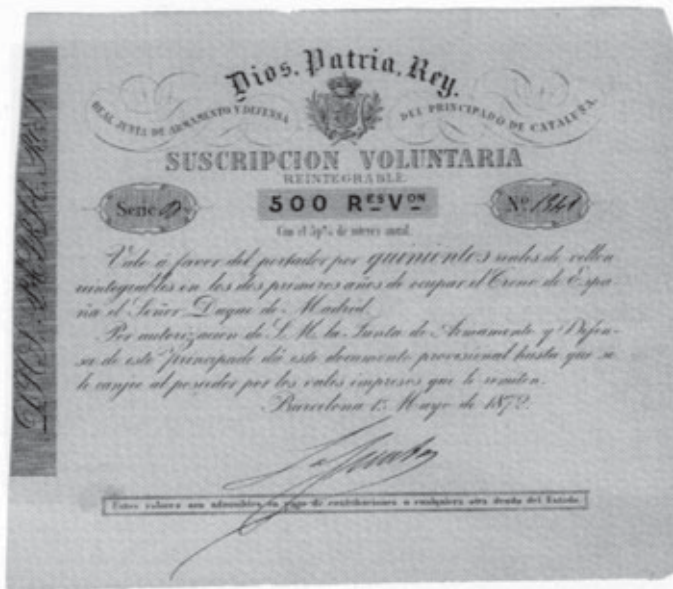 Dios, Patria, Rey.
REAL JUNTA DE ARMAMENTO Y DEFENSA DEL PRINCIPADO DE CATALUÑA.
SUSCRIPCION VOLUNTARIA
REINTEGRABLE
Serie
500 Rᴱˢ Vᴼᴺ
Nº 1341
Con el 3p% de interes anual.
Vale á favor del portador por quinientos reales de vellon
reintegrables en los dos primeros años de ocupar el Trono de Espa-
ña el Señor Duque de Madrid.
Por autorizacion de S. M. la Junta de Armamento y Defen-
sa de este Principado dá este documento provisional hasta que se
le canjee al poseedor por los vales impresos que le remiten.
Barcelona 15 Mayo de 1872.
Estos valores son admisibles en pago de contribuciones o cualquiera otra deuda del Estado.